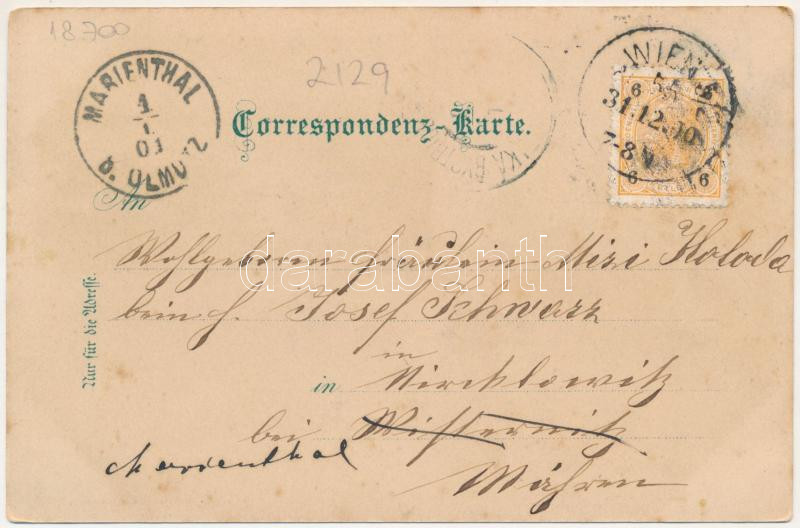 18.700
2129
MARIENTHAL
1
1
01
b. OLMÜTZ
WIEN
31.12.00
7-8 V
6 6
6 6
Correspondenz-Karte.
An
Wohlgeboren Fräulein Mizi Holoda
beim H. Josef Schwarz
in
in Nirklowitz
bei Wisternitz
Marienthal
Mähren
Nur für die Adresse.
darabanth